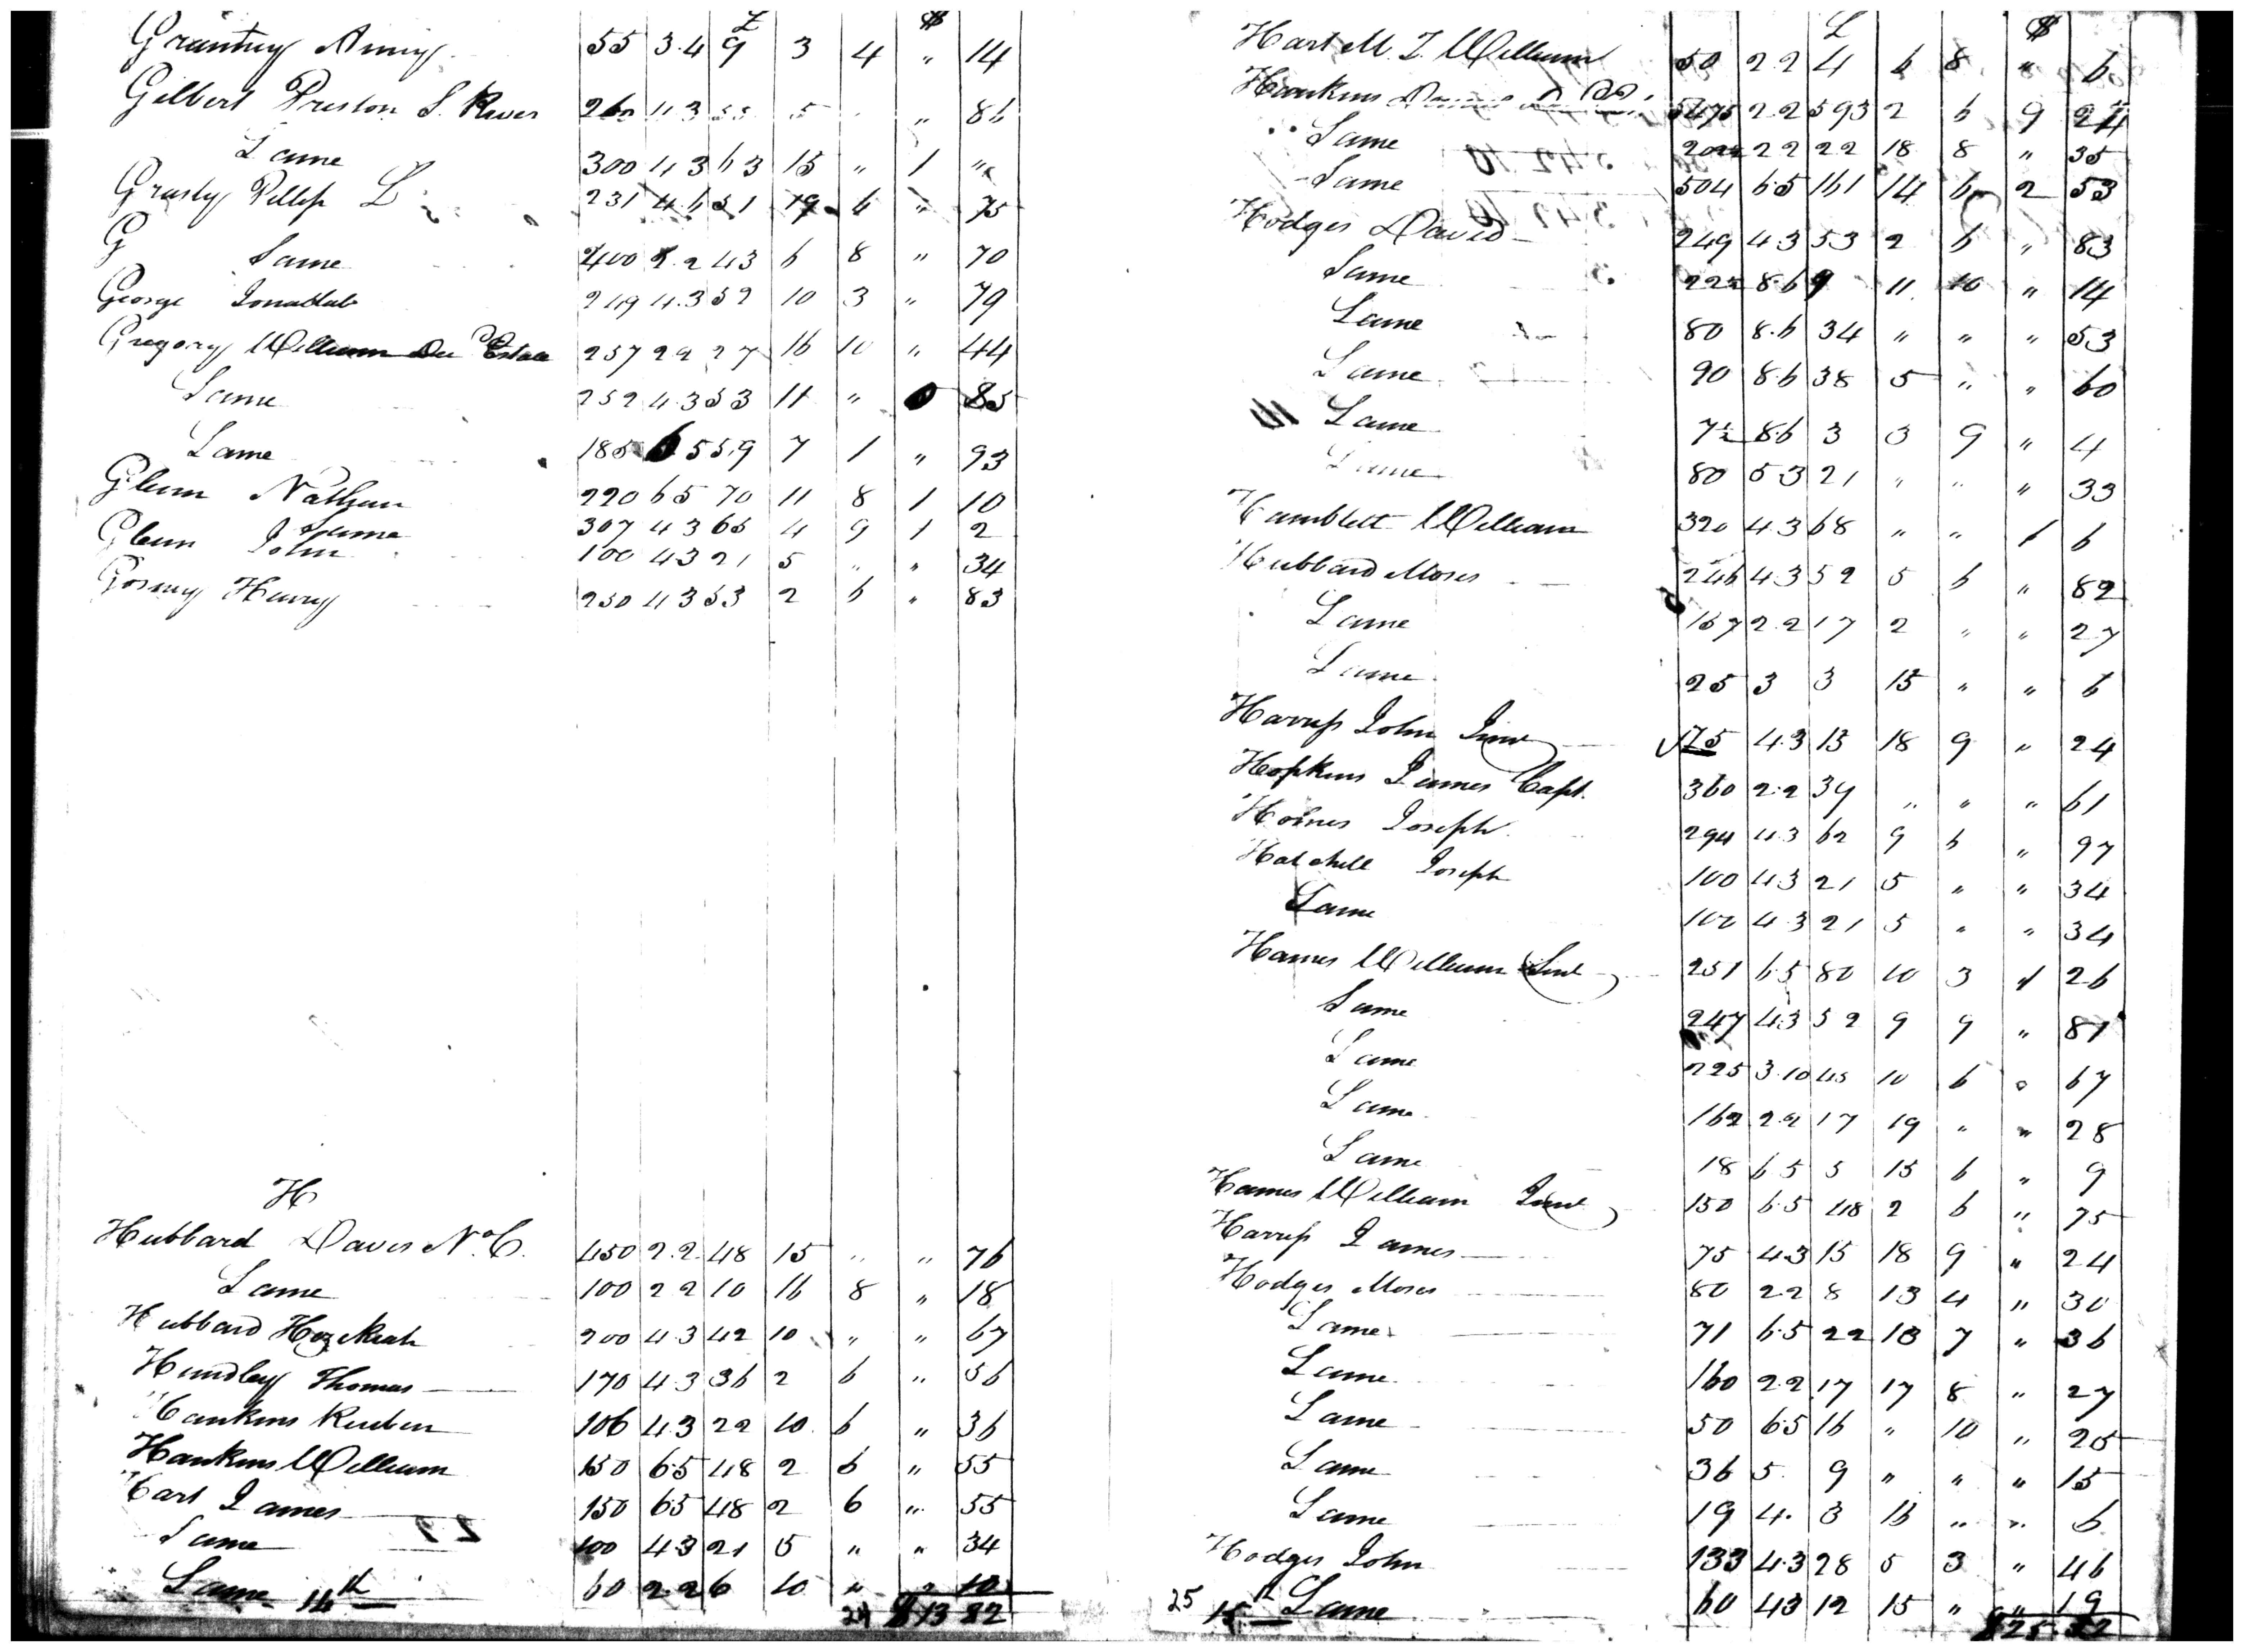 £ $
55 3.4 9 3 4 " 14
Gilbert Preston S. River 260 4 3 55 5 " " 86
Same 300 4 3 63 15 " 1 "
231 4.6 51 19 6 " 75
G Same 400 2.2 43 6 8 " 70
George 249 4.3 52 10 3 " 79
Gregory William Estate 257 2 2 27 16 10 " 44
Same 252 4.3 53 11 " 85
Same 185 6 5 59 7 1 " 93
Glenn Nathan 220 6 5 70 11 8 1 10
Same 307 4 3 65 4 9 1 2
Glenn John 100 4 3 21 5 " " 34
Harry 250 4 3 53 2 6 " 83
H
Hubbard Davis N. C. 450 2.2 48 15 " " 76
Same 100 2 2 10 16 8 " 18
Hubbard Hezekiah 200 4.3 42 10 " " 67
Hundley Thomas 170 4 3 36 2 6 " 56
Hankins Reuben 106 4.3 22 10 6 " 36
Hankins William 150 6.5 48 2 6 " 55
Hart James 150 6.5 48 2 6 " 55
Same 100 4.3 21 5 " " 34
Same 60 2.2 6 10 " " 10
16th 24 $13 82
£ $
Hart William 50 2.2 4 6 8 " 6
Hankins 5475 2.2 593 2 6 9 24
Same 22 22 18 8 " 35
Same 504 6.5 161 14 6 2 53
Hodges David 249 4.3 53 2 6 " 83
Same 225 8.6 9 11 10 " 14
Same 80 8.6 34 " " " 53
Same 90 8.6 38 5 " " 60
Same 7½ 8.6 3 3 9 " 4
Same 80 5 3 21 " " " 33
Hamblett William 320 4.3 68 " " 1 6
Hubbard Moses 246 4.3 52 5 6 " 82
Same 157 2.2 17 2 " " 27
Same 25 3 3 15 " " 6
John Junr 75 4.3 15 18 9 " 24
Hopkins James Capt. 360 2.2 39 " " " 61
Joseph 294 4.3 62 9 6 " 97
Hatchell Joseph 100 4.3 21 5 " " 34
Same 100 4.3 21 5 " " 34
Hames William Senr 251 6.5 80 10 3 1 26
Same 247 4.3 52 9 9 " 81
Same 225 3.10 45 10 6 " 67
Same 162 2.2 17 19 " " 28
Same 18 6 5 5 15 6 " 9
Hames William Junr 150 6.5 48 2 6 " 75
James 75 4.3 15 18 9 " 24
Hodges Moses 80 2 2 8 13 4 " 30
Same 71 6.5 22 13 7 " 36
Same 160 2.2 17 17 8 " 27
Same 50 6.5 16 " 10 " 25
Same 36 5. 9 " " " 15
Same 19 4. 3 16 " " 6
Hodges John 133 4.3 28 5 3 " 46
25 15th Same 60 4.3 12 15 " " 19
$25 32